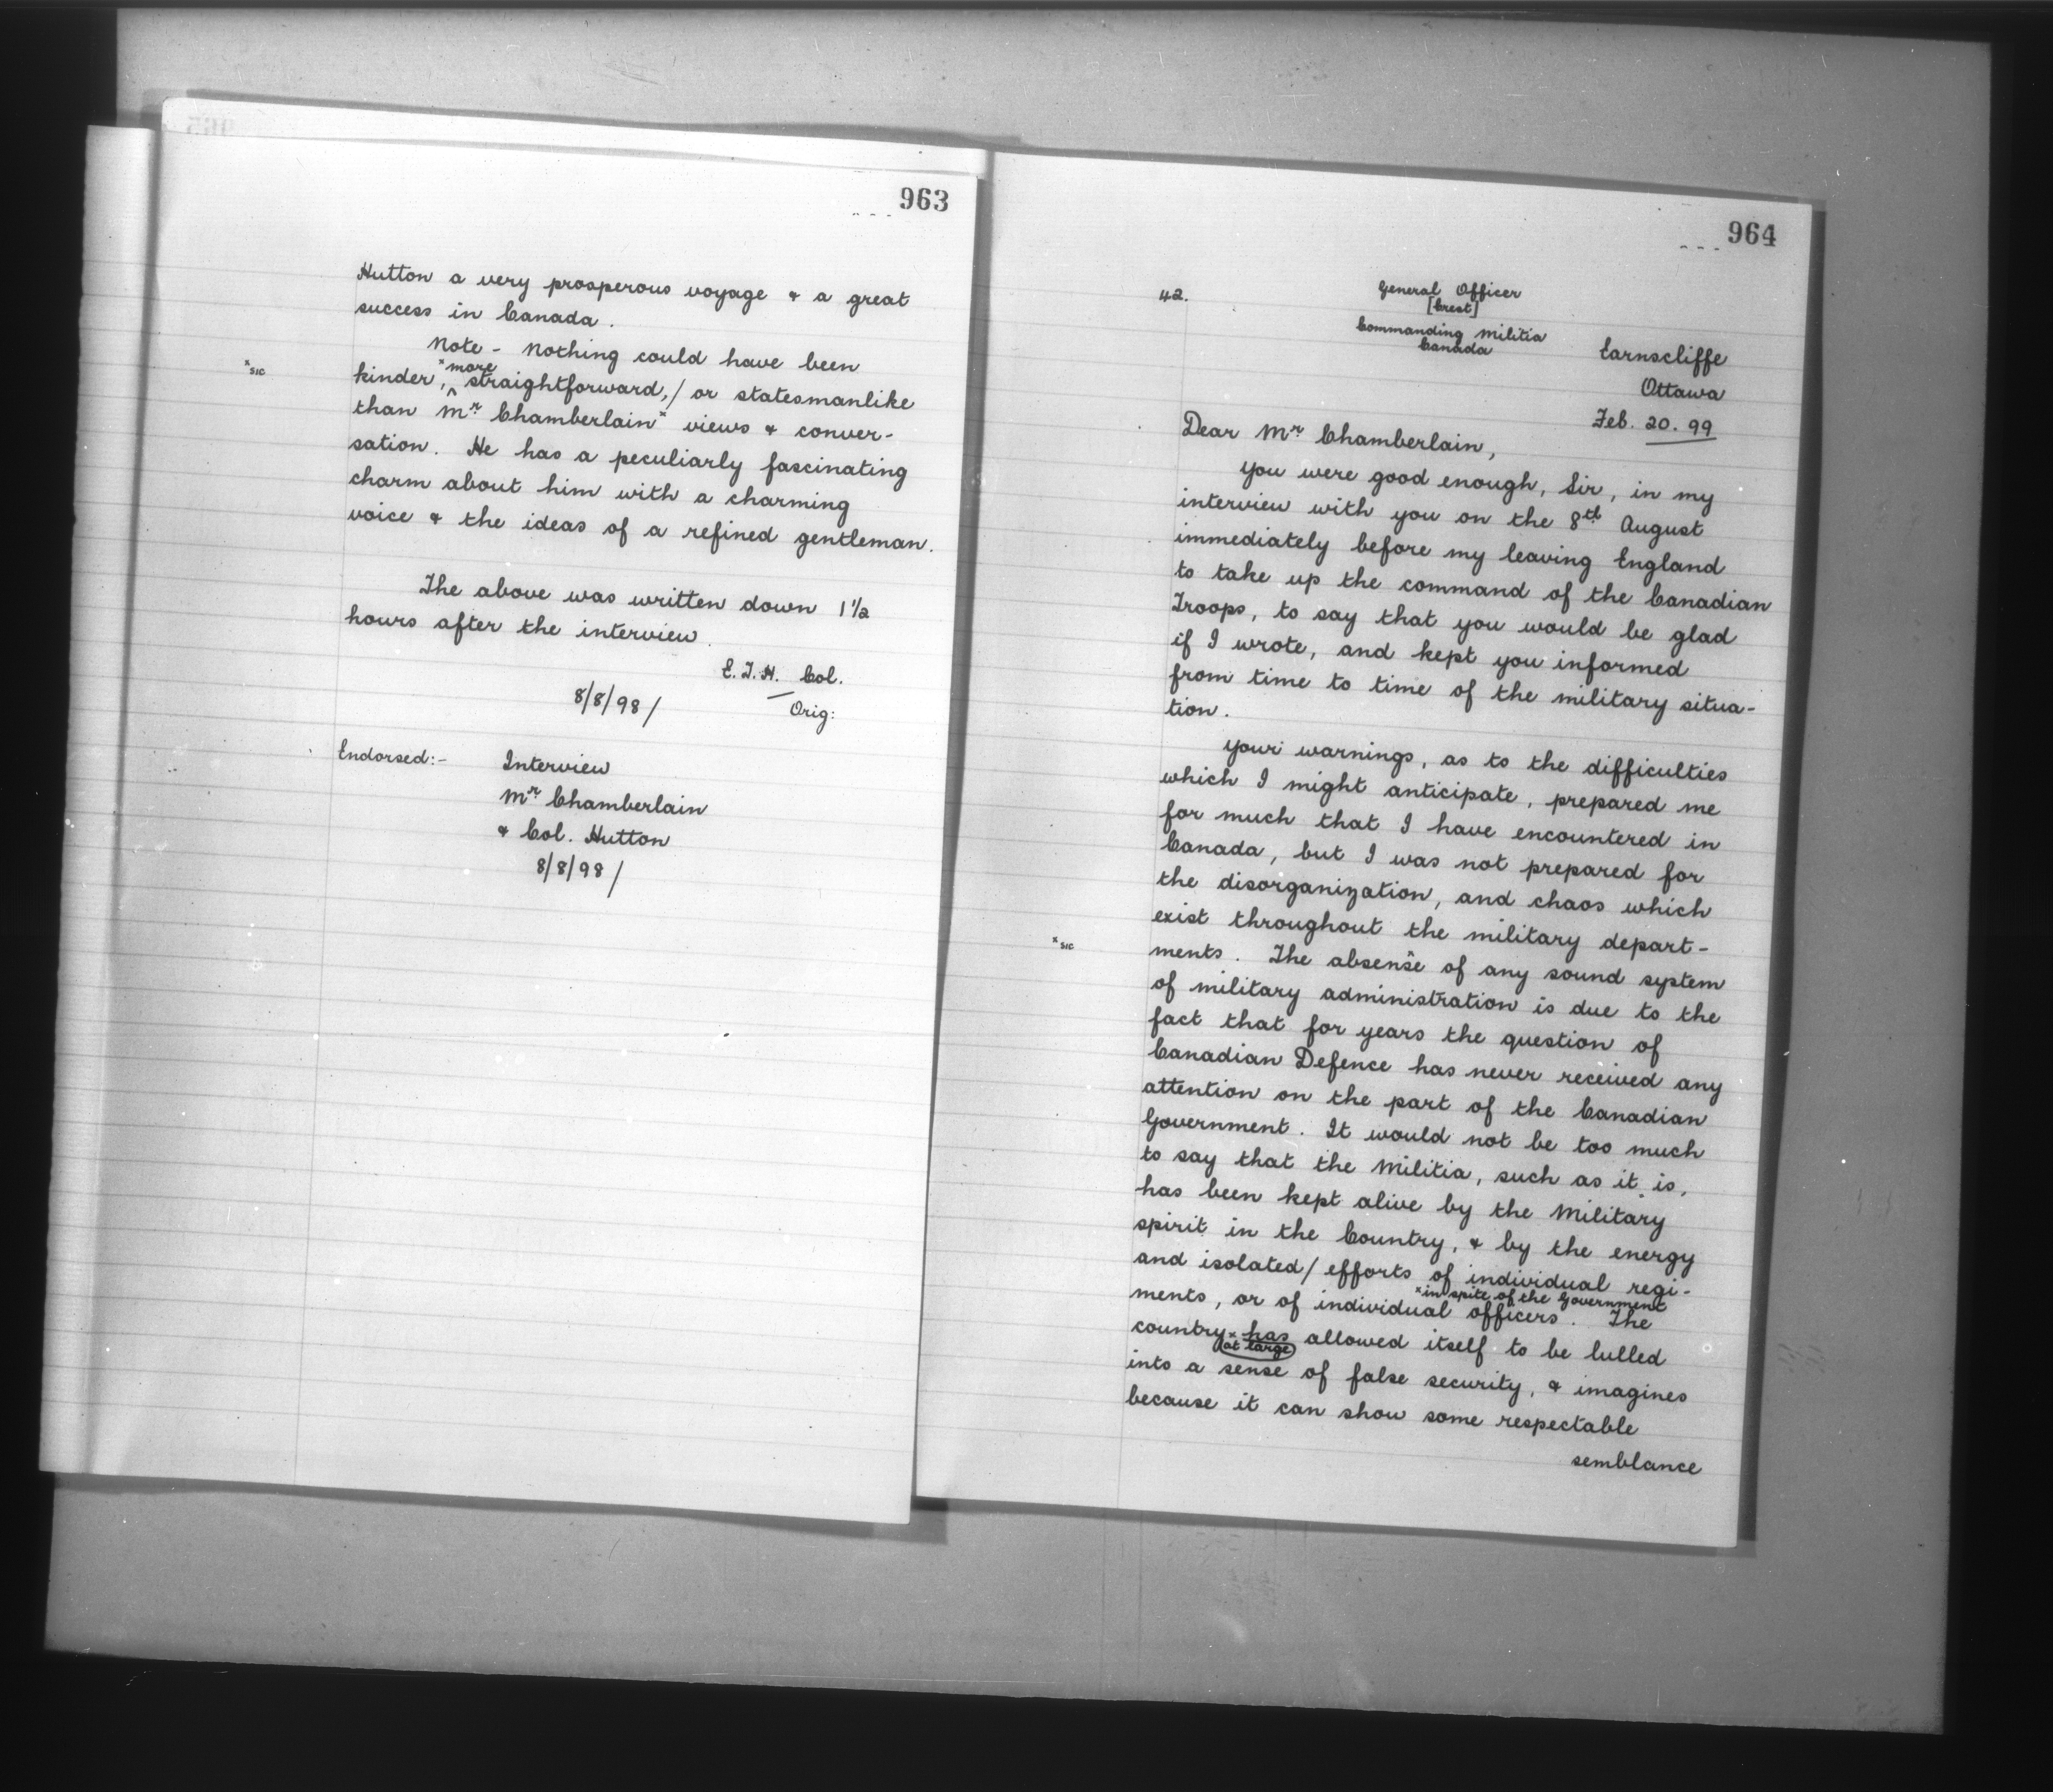 963
Hutton a very prosperous voyage & a great
success in Canada.
Note - Nothing could have been
x more
x sic
kinder, ^ straightforward,/ or statesmanlike
than Mr Chamberlain x views & conver-
sation. He has a peculiarly fascinating
charm about him with a charming
voice & the ideas of a refined gentleman.
The above was written down 1 1/2
hours after the interview.
E.T.H. Col.
8/8/98/
Orig:
Endorsed:- Interview
Mr Chamberlain
& Col. Hutton
8/8/98/
964
42.
General Officer
[Crest]
Commanding Militia
Canada
Earnscliffe
Ottawa
Feb. 20. 99
Dear Mr Chamberlain,
You were good enough, Sir, in my
interview with you on the 8th August
immediately before my leaving England
to take up the command of the Canadian
Troops, to say that you would be glad
if I wrote, and kept you informed
from time to time of the military situa-
tion.
Your warnings, as to the difficulties
which I might anticipate, prepared me
for much that I have encountered in
Canada, but I was not prepared for
the disorganization, and chaos which
exist throughout the military depart-
x sic
ments. The absense x of any sound system
of military administration is due to the
fact that for years the question of
Canadian Defence has never received any
attention on the part of the Canadian
Government. It would not be too much
to say that the Militia, such as it is,
has been kept alive by the Military
spirit in the Country, & by the energy
and isolated/ efforts of individual regi-
x in spite of the Government
ments, or of individual officers. The
country x has allowed itself to be lulled
at large
into a sense of false security, & imagines
because it can show some respectable
semblance